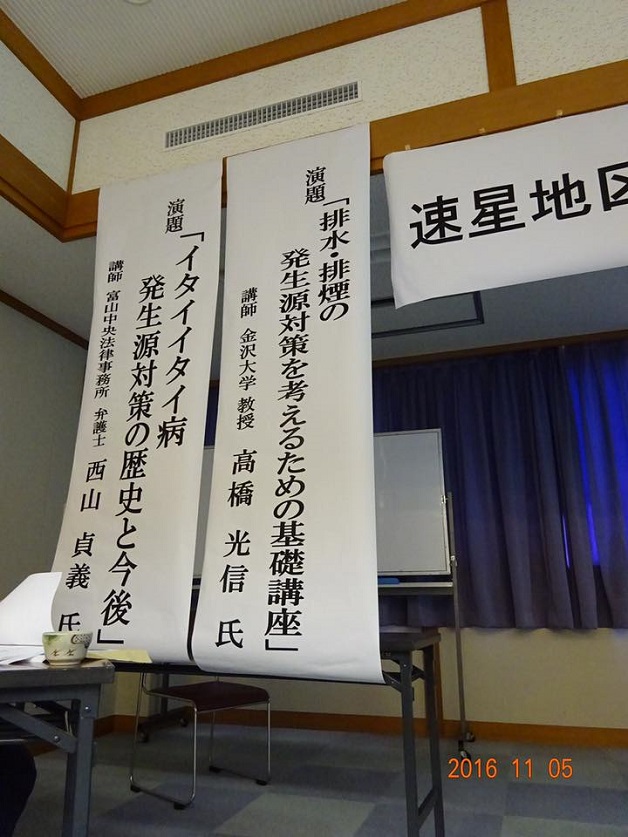 速星地区
演題「排水・排煙の
発生源対策を考えるための基礎講座」
講師 金沢大学 教授 高橋 光信 氏
演題「イタイイタイ病
発生源対策の歴史と今後」
講師 富山中央法律事務所 弁護士 西山 貞義 氏
2016 11 05